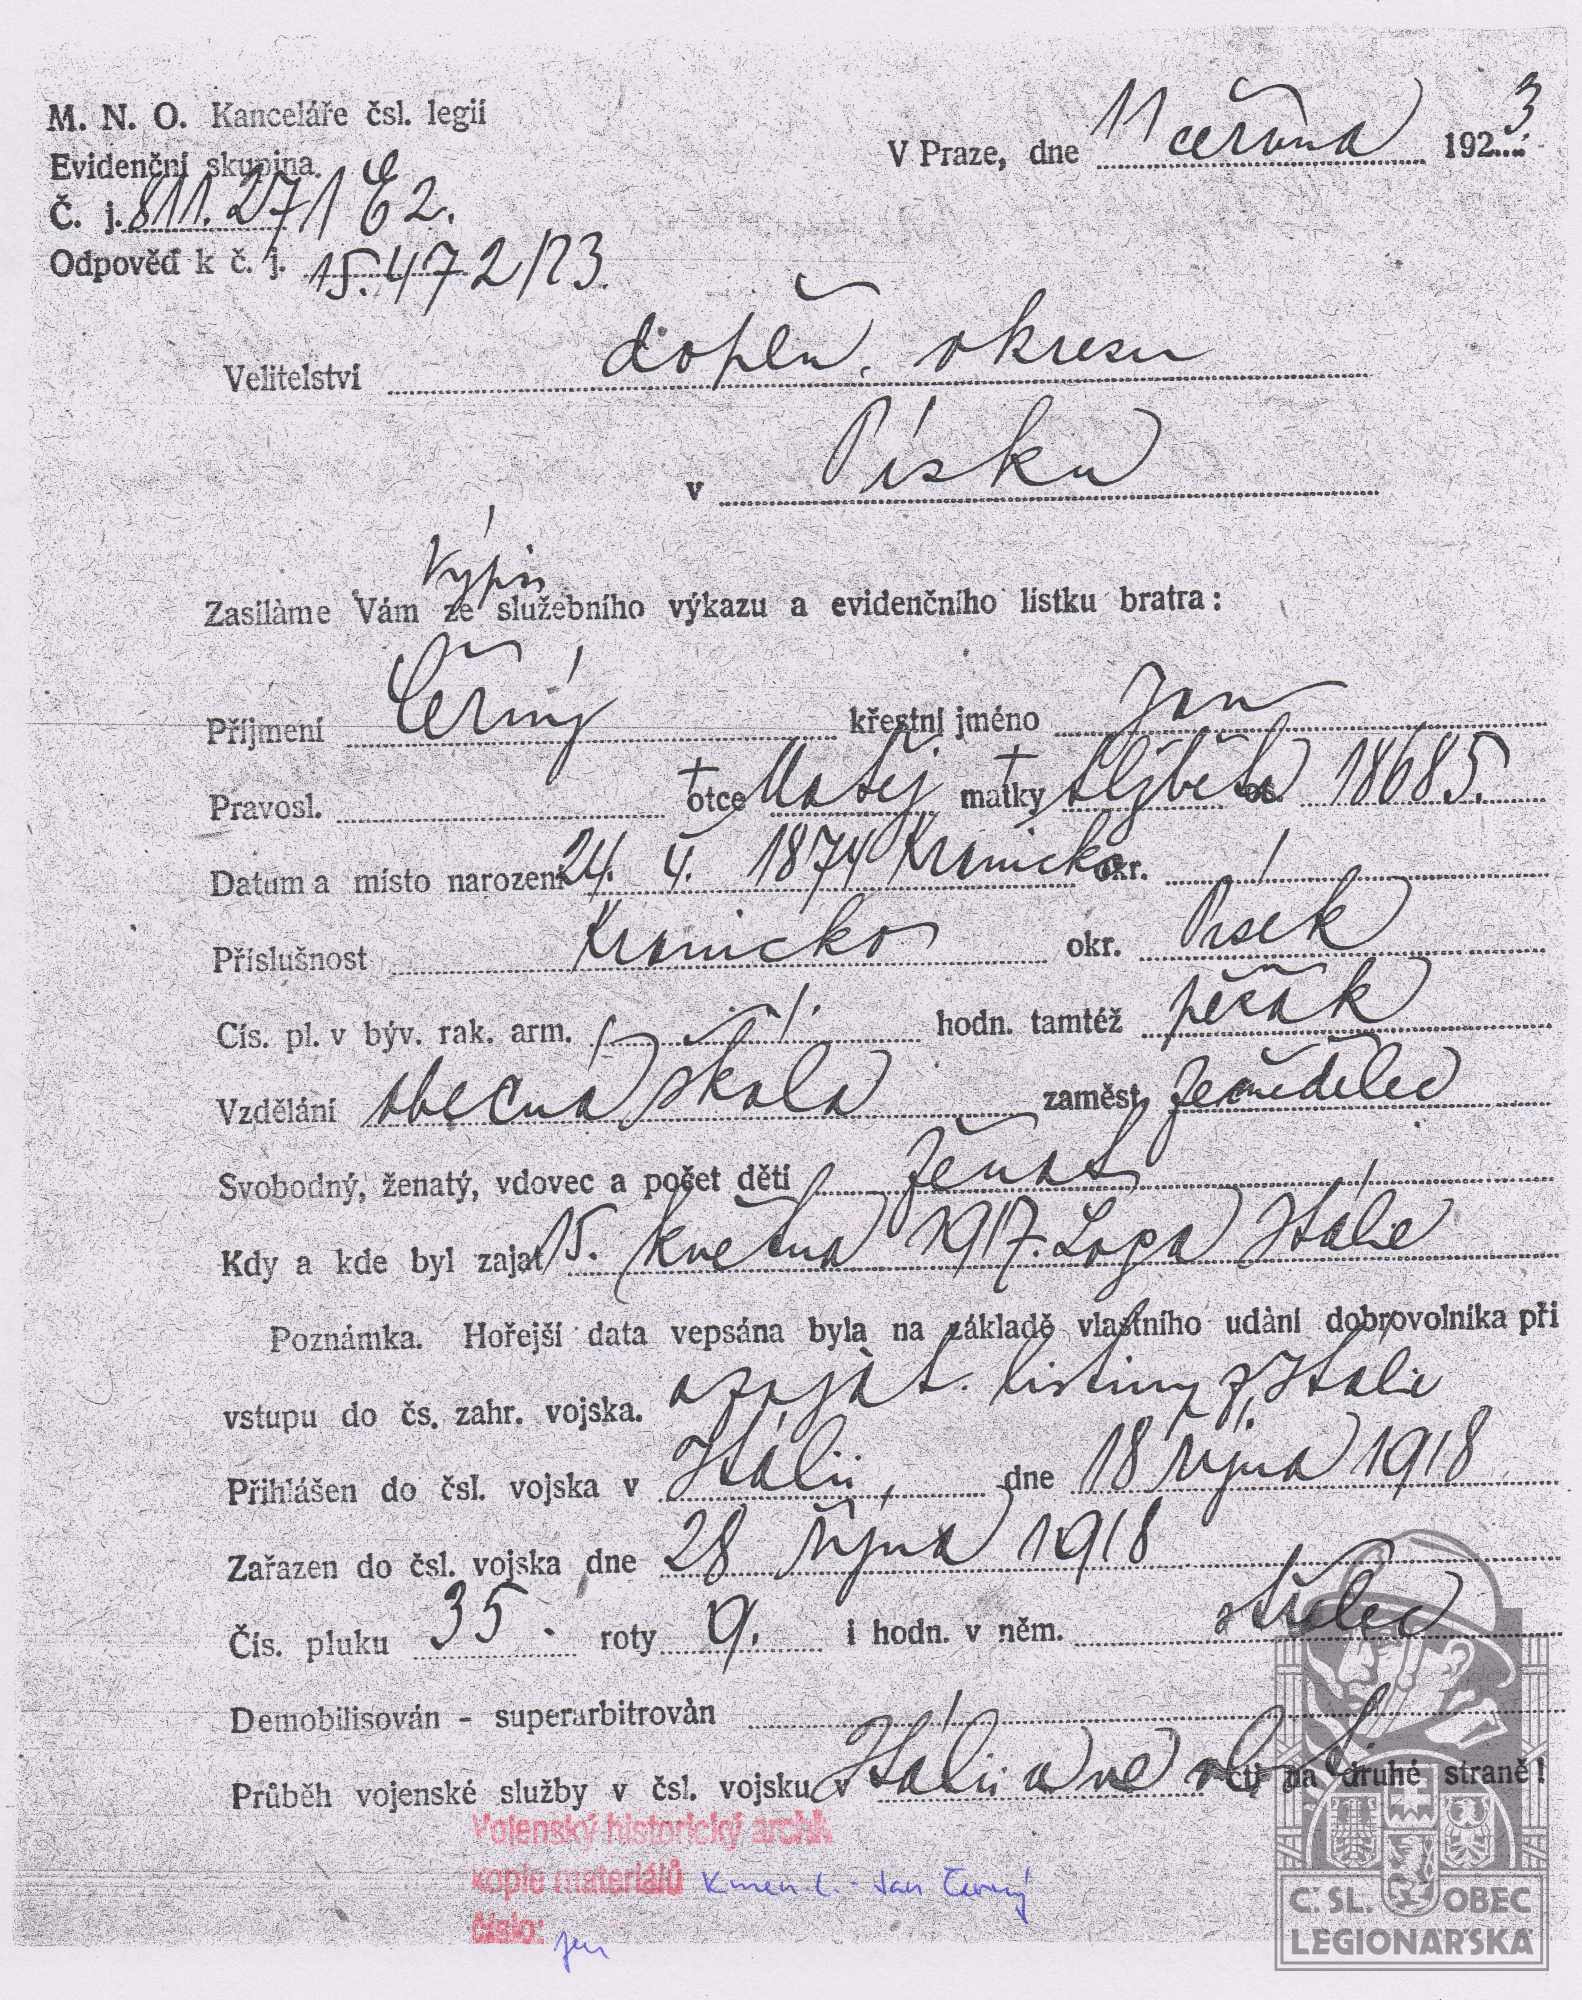 M. N. O. Kanceláře čsl. legií
V Praze, dne 11 června 1923
Evidenční skupina.
Č. j. 811.271 E2.
Odpověď k č. j. 15.472/23.
Velitelství doplň. okresu
v Písku
Výpis
Zasíláme Vám ze služebního výkazu a evidenčního lístku bratra:
Příjmení Černý křestní jméno Jan
Pravosl. † otce Matěj matky † Alžběta os. 18685.
Datum a místo narození 24. 4. 1874 okr.
Příslušnost okr. Písek
Čís. pl. v býv. rak. arm. hodn. tamtéž pěšák
Vzdělání obecná škola zaměst. zemědělec
Svobodný, ženatý, vdovec a počet dětí ženat
Kdy a kde byl zajat 15. května 1917. Loga Itálie
Poznámka. Hořejší data vepsána byla na základě vlastního udání dobrovolníka při
vstupu do čs. zahr. vojska. a zajat. listiny z Itálie
Přihlášen do čsl. vojska v Itálii, dne 18 října 1918
Zařazen do čsl. vojska dne 28 října 1918
Čís. pluku 35. roty 9. i hodn. v něm. střelec
Demobilisován - superarbitrován
Průběh vojenské služby v čsl. vojsku v Itálii a ve na druhé straně!
Vojenský historický archiv
kopie materiálů Kmen. l. - Jan Černý
číslo:
Č. SL. OBEC
LEGIONÁŘSKÁ